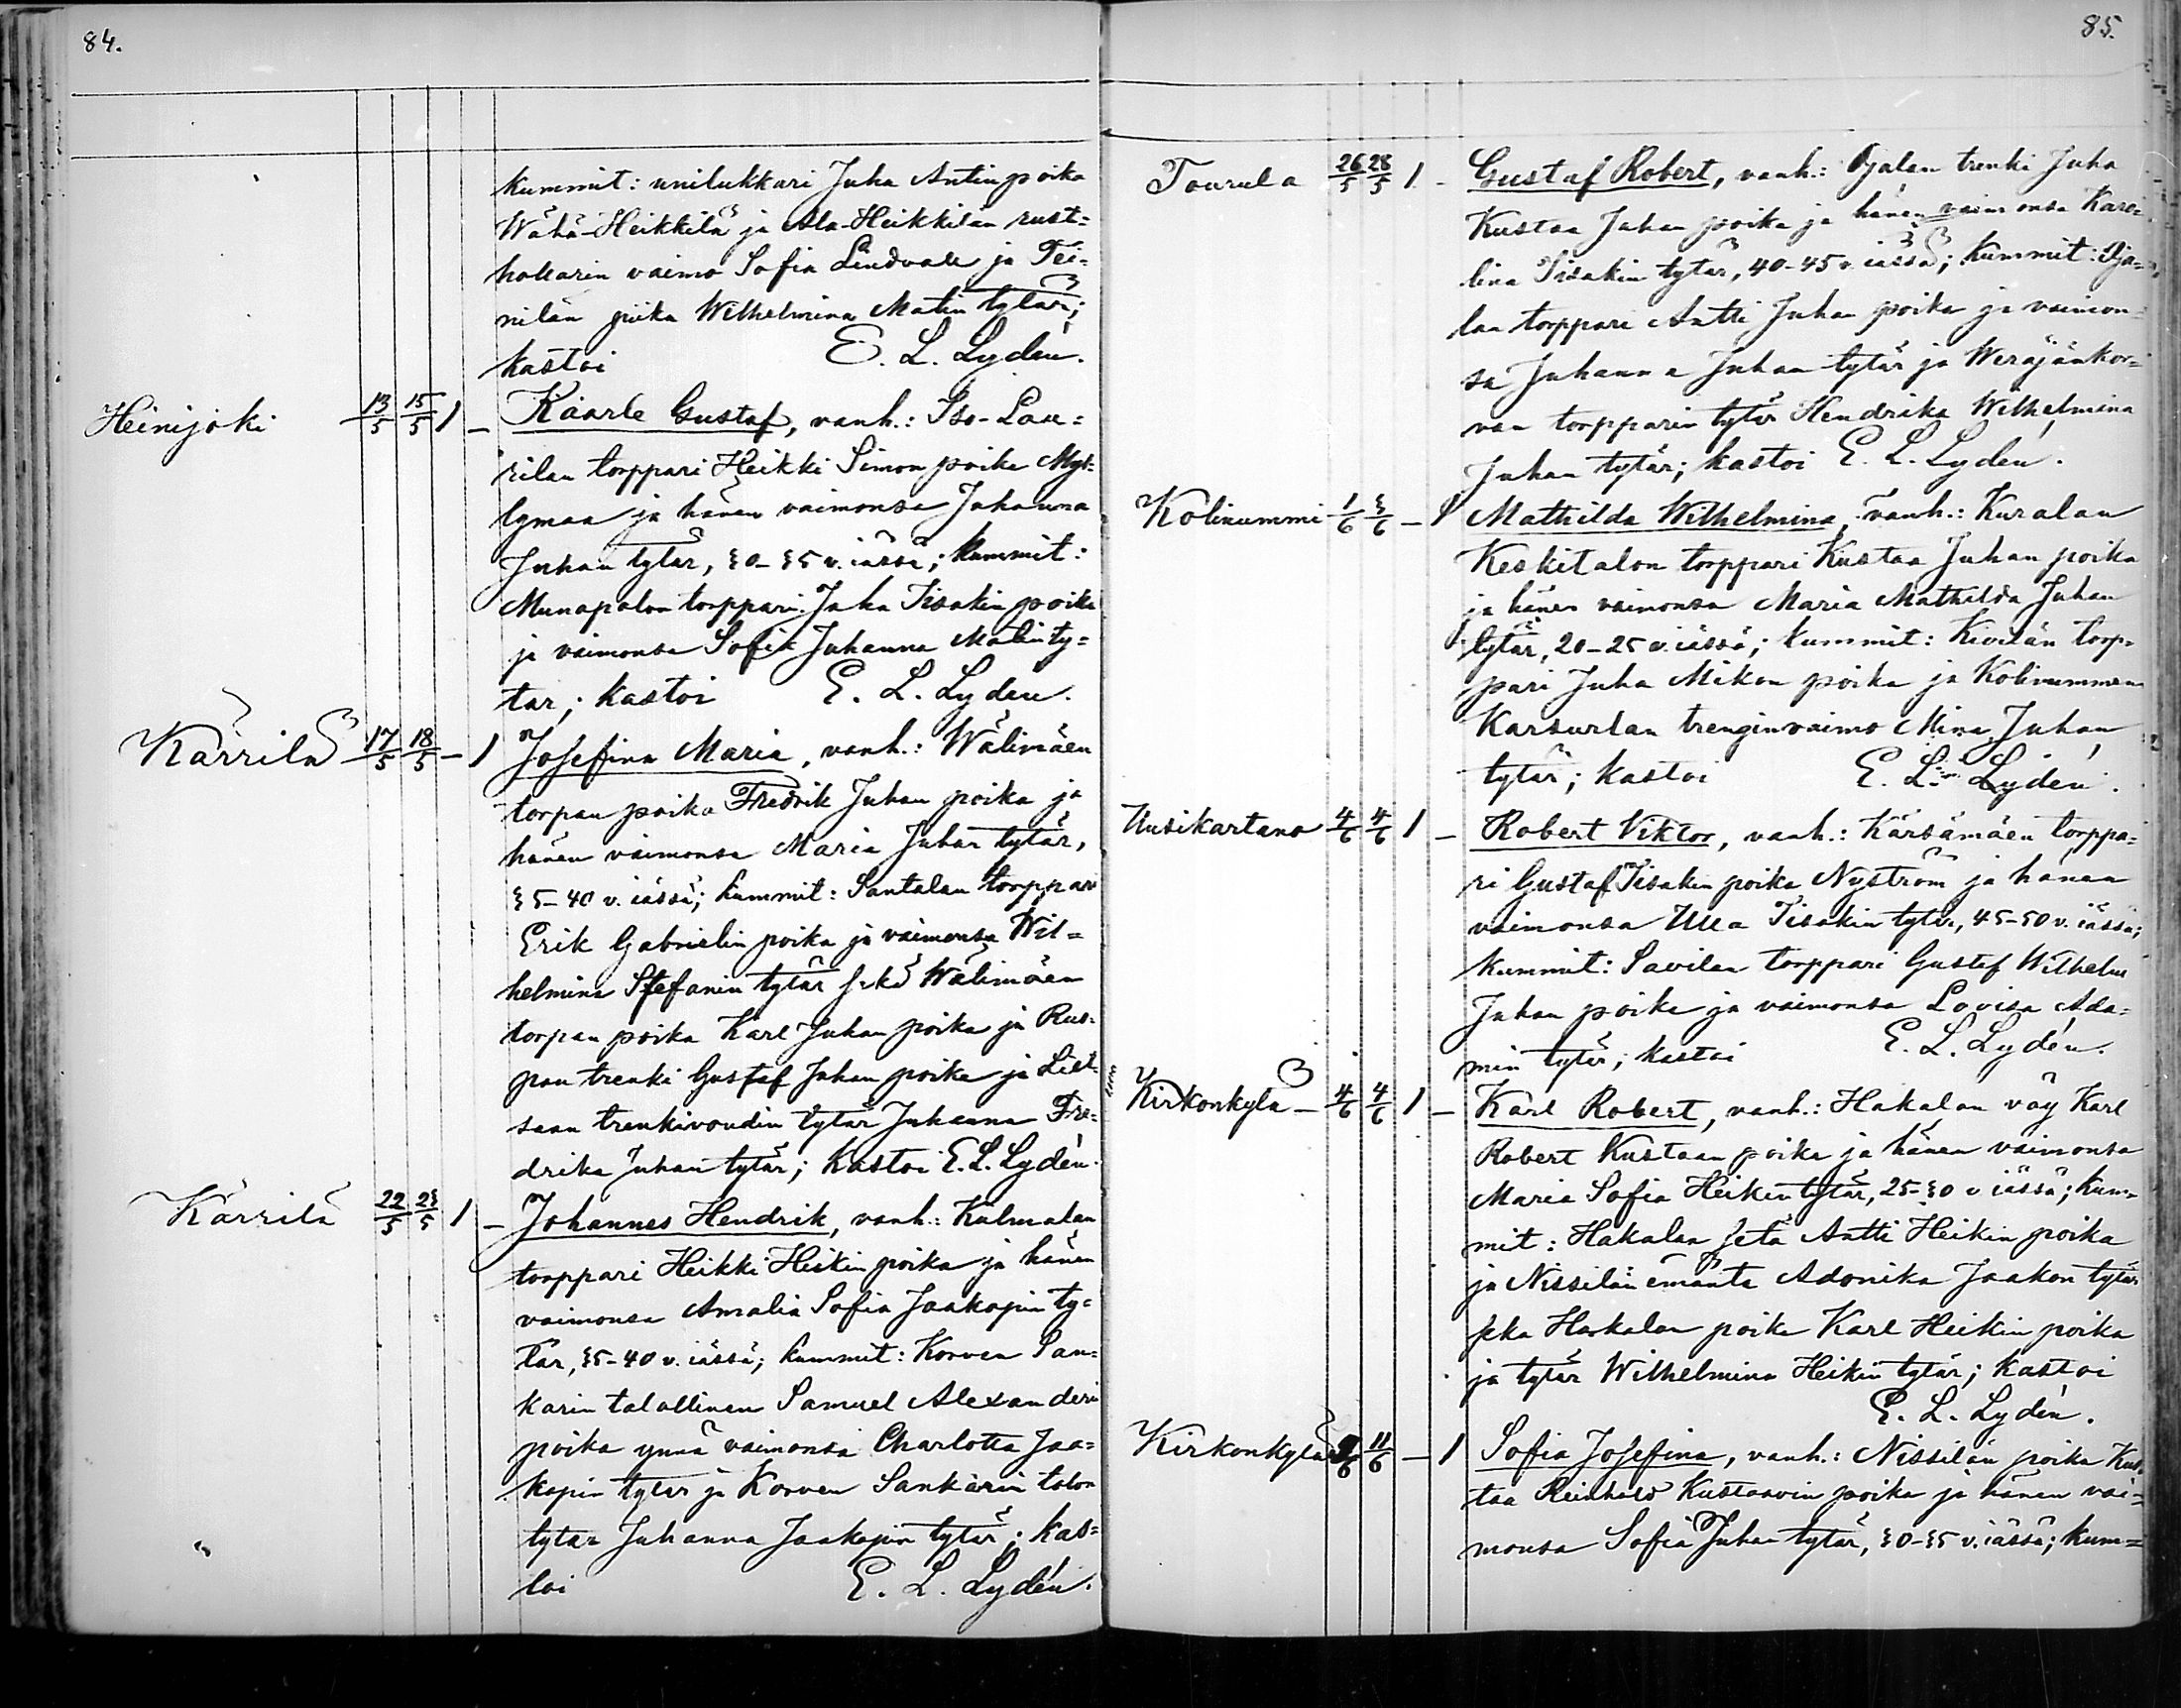 84.
kummit: unilukkari Juha Antin poika
Wähä-Heikkilä ja Ala-Heikkilän rust-
hollarin vaimo Sofia Lindvall ja Tei-
nilän piika Wilhelmina Matin tytär;
kastoi E. L. Lydén.
Heinijoki 13/5 15/5 1 – Kaarle Gustaf, vanh.: Iso-Lau=
rilan torppari Heikki Simon poika Myl-
lymaa ja hänen vaimonsa Johanna
Juhan tytär, 30-35 v. iässä; kummit:
Munapalon torppari Juha Iisakin poika
ja vaimonsa Sofia Juhanna Matin ty=
tar; kastoi E. L. Lyden.
Kärrilä 17/5 18/5 – 1 Josefina Maria, vanh.: Wälimäen
torpan poika Fredrik Juhan poika ja
hänen vaimonsa Maria Juhan tytär,
35-40 v. iässä; kummit: Santalan torppari
Erik Gabrielin poika ja vaimonsa Wil=
helmina Stefanin tytär sekä Wälimäen
torpan poika Karl Juhan poika ja
pan trenki Gustaf Juhan poika ja
saan trenkivoudin tytär Juhanna Fre-
drika Juhan tytär; kastoi E. L. Lydén.
Kärrilä 22/5 23/5 1 – Johannes Hendrik, vanh.: Kulmalan
torppari Heikki Heikin poika ja hänen
vaimonsa Amalia Sofia Jaakopin ty=
tär, 35-40 v. iässä; kummit: Korven San=
karin talollinen Samuel Alexanderin
poika ynnä vaimonsa Charlotta Jaa=
kopin tytär ja Korven Sankarin talon
tytar Juhanna Jaakopin tytär; kas=
toi E. L. Lydén.
85.
Tourula 26/5 28/5 1 – Gustaf Robert, vanh.: Ojalan trenki Juha
Kustaa Juhan poika ja hänen vaimonsa Karo-
lina Iisakin tytär, 40-45 v. iässä; kummit: Oja=
lan torppari Antti Juhan poika ja vaimon=
sa Juhanna Juhan tytär ja Weräjänkor=
van torpparin tytär Hendrika Wilhelmina
Juhan tytär; kastoi E. L. Lydén.
Kolinummi 1/6 3/6 – 1 Mathilda Wilhelmina, vanh.: Kuralan
Keskitalon torppari Kustaa Juhan poika
ja hänen vaimonsa Maria Mathilda Juhan
tytär, 20-25 v. iässä; kummit: Kivilän torp-
pari Juha Mikon poika ja Kolinummen
Karsurlan trenginvaimo Mina Juhan
tytär; kastoi E. L. Lydén.
Uusikartano 4/6 4/6 1 – Robert Viktor, vanh.: Kärsämäen torppa=
ri Gustaf Iisakin poika Nyström ja hänen
vaimonsa Ulla Iisakin tytär, 45-50 v. iässä;
kummit: Savilan torppari Gustaf Wilhelm
Juhan poika ja vaimonsa Lovisa Ada=
min tytär; kastoi E. L. Lydén.
Kirkonkylä – 4/6 4/6 1 – Karl Robert, vanh.: Hakalan väy Karl
Robert Kustaan poika ja hänen vaimonsa
Maria Sofia Heikin tytär, 25-30 v iässä; kum-
mit: Hakalan setä Antti Heikin poika
ja Nissilän emäntä Adonika Jaakon tytär
seka Hakalan poika Karl Heikin poika
ja tytär Wilhelmina Heikin tytär; kastoi
E. L. Lydén.
Kirkonkylä 11/6 – 1 Sofia Josefina, vanh.: Nissilän poika Kus-
taa Reinhold Kustaavin poika ja hänen vai=
monsa Sofia Juhan tytär, 30-35 v. iässä; kum=